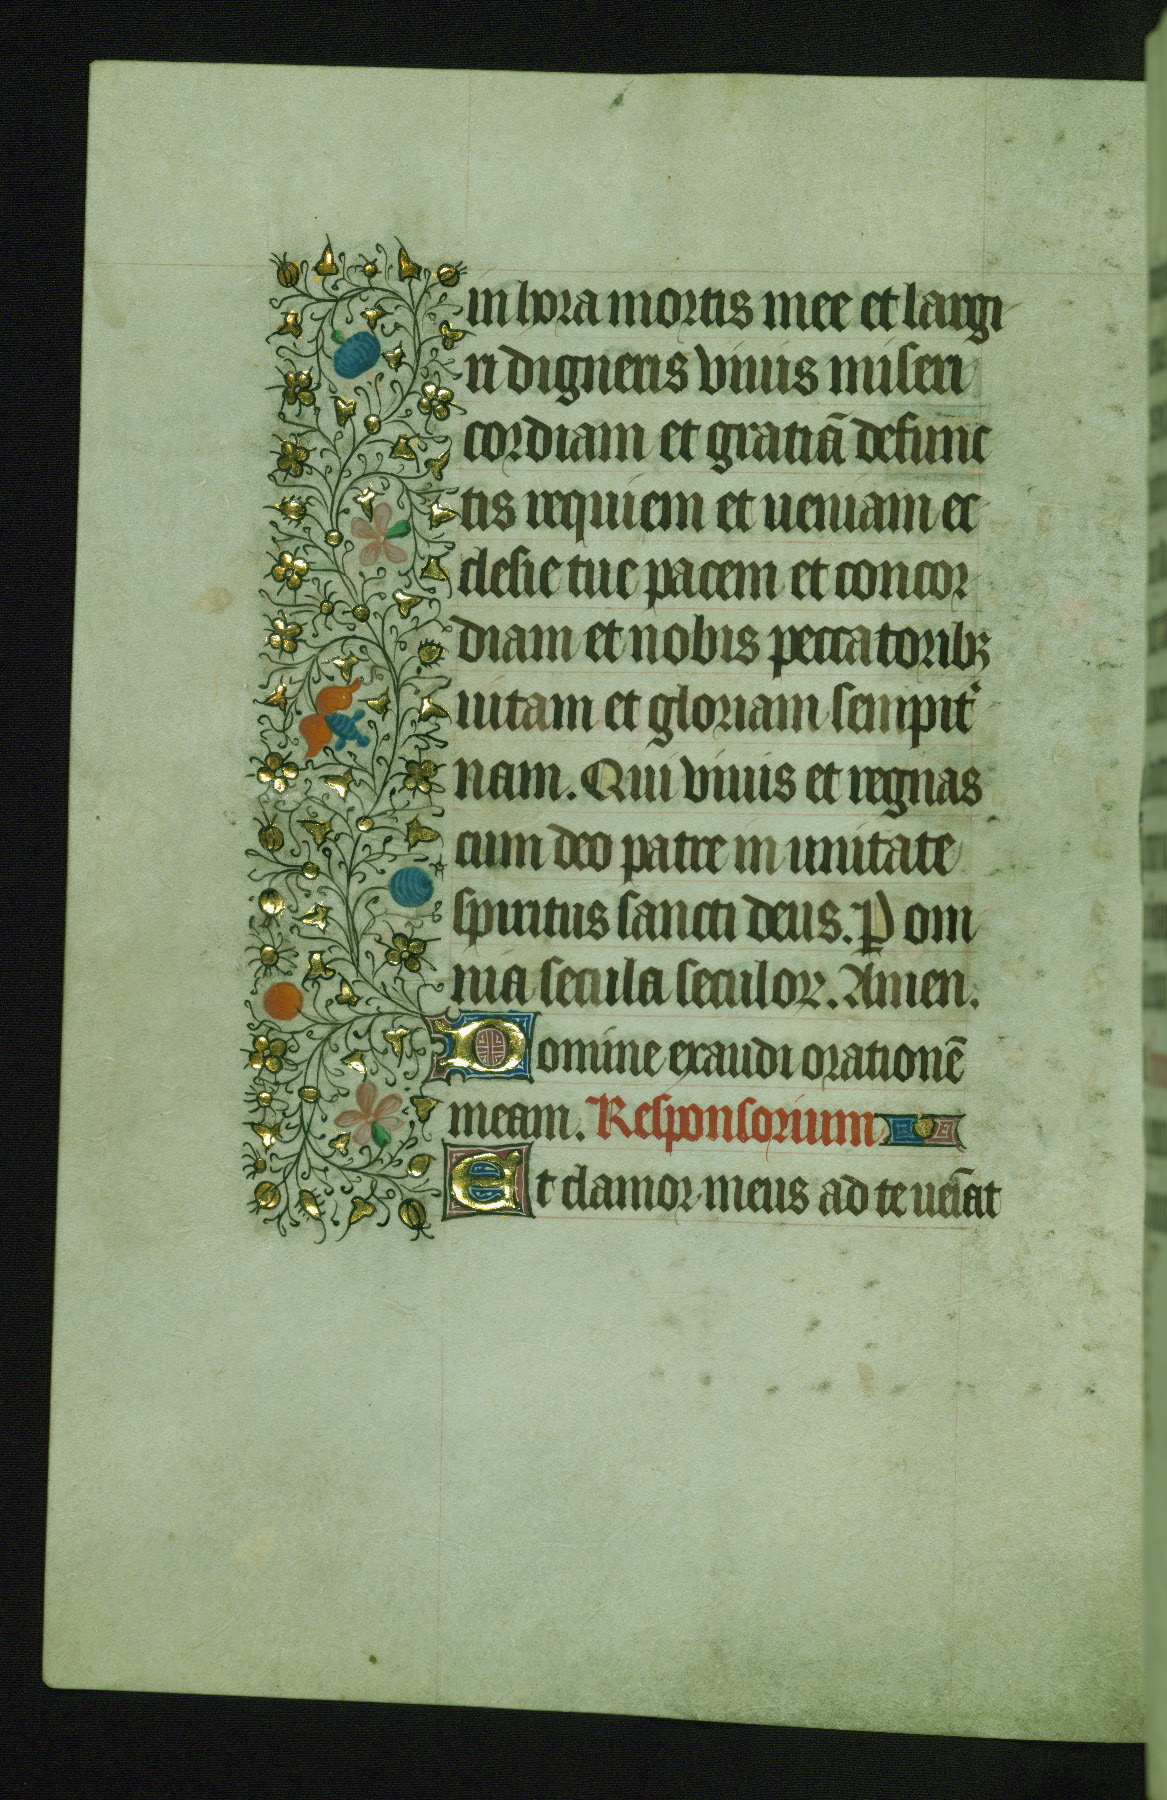 in hora mortis mee et largi
ri digneris viuis miseri
cordiam et gratiā defunc
tis requiem et ueniam ec
clesie tue pacem et concor
diam et nobis peccatoribꝫ
uitam et gloriam sempit᷑
nam. Qui viuis et regnas
cum deo patre in unitate
spiritus sancti deus. P om
nia secula seculoꝝ. Amen.
Domine exaudi orationē
meam. Responsorium
Et clamor meus ad te ueīat